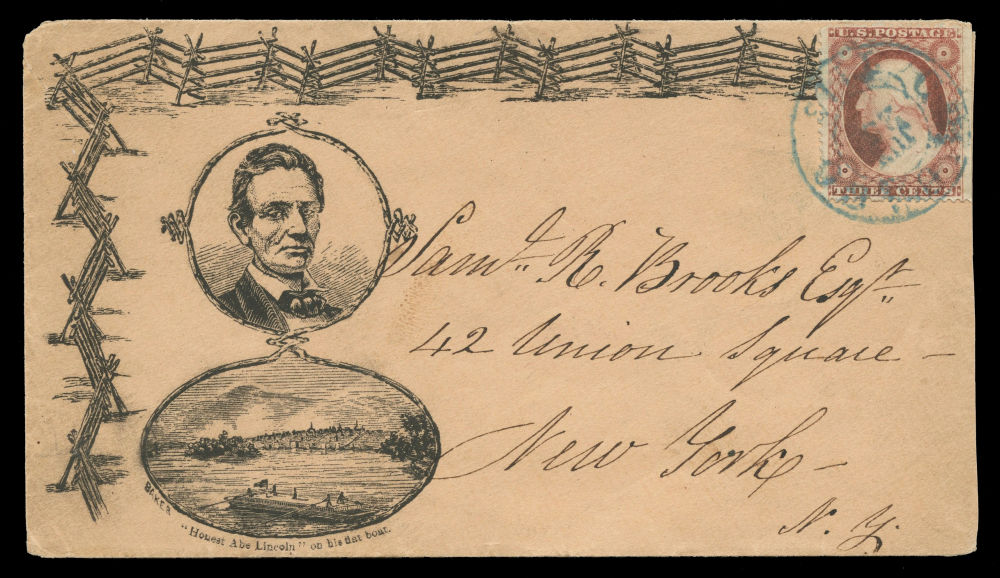 U.S. POSTAGE
THREE CENTS
Saml. R. Brooks Esqr.
42 Union Square –
New York –
N. Y.
BAKER
"Honest Abe Lincoln" on his flat boat.